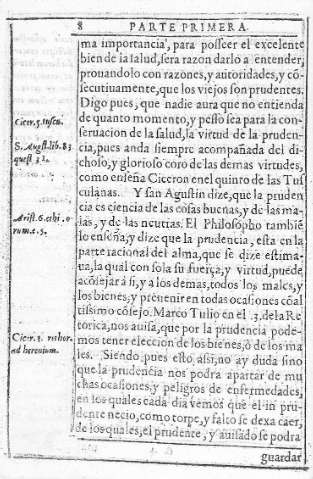 8 PARTE PRIMERA.
ma importancia, para posseer el excelente
bien de la salud, sera razon darlo a entender,
prouandolo con razones, y autoridades, y cõ
secutiuamente, que los viejos son prudentes.
Digo pues, que nadie aura que no entienda
de quanto momento, y pesso sea para la con-
Cicer. 5. tuscu.
seruacion de la salud, la virtud de la pruden-
cia, pues anda siempre acompañada del di-
S. Augst. lib. 83
choso, y glorioso coro de las demas virtudes,
quest 31.
como enseña Ciceron en el quinto de las Tus
culanas. Y san Agustin dize, que la pruden
cia es ciencia de las cosas buenas, y de las ma-
las, y de las neutras. El Philosopho tambiē
Arist. 6. ethi.
lo enseña, y dize que la prudencia, esta en la
parte racional del alma, que se dize estima-
ua, la qual con sola su fuerça, y virtud, puede
acōsejar a si, y a los demas, todos los males, y
los bienes, y preuenir en todas ocasiones cōal
tissimo cōsejo. Marco Tulio en el .3. de la Re
torica, nos auisa, que por la prudencia pode-
Cicer. 3. rethor.
mos tener eleccion de los bienes, ò de los ma
ad herenium.
les. Siendo pues esto assi, no ay duda sino
que la prudencia nos podra apartar de mu
chas ocasiones, y peligros de enfermedades,
en los quales cada dia vemos que el in pru-
dente necio, como torpe, y falto se dexa caer,
de los quales, el prudente, y auisado se podra
guardar